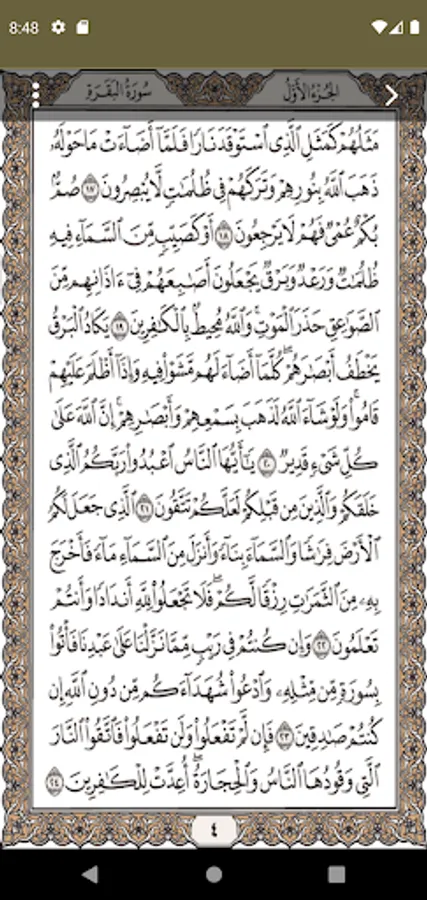 8:48
سُورَةُ البَقَرَةِ الجُزْءُ الأَوَّلُ
مَثَلُهُمْ كَمَثَلِ ٱلَّذِى ٱسْتَوْقَدَ نَارًا فَلَمَّآ أَضَآءَتْ مَا حَوْلَهُۥ
ذَهَبَ ٱللَّهُ بِنُورِهِمْ وَتَرَكَهُمْ فِى ظُلُمَٰتٍ لَّا يُبْصِرُونَ ١٧ صُمٌّۢ
بُكْمٌ عُمْىٌ فَهُمْ لَا يَرْجِعُونَ ١٨ أَوْ كَصَيِّبٍ مِّنَ ٱلسَّمَآءِ فِيهِ
ظُلُمَٰتٌ وَرَعْدٌ وَبَرْقٌ يَجْعَلُونَ أَصَٰبِعَهُمْ فِىٓ ءَاذَانِهِم مِّنَ
ٱلصَّوَٰعِقِ حَذَرَ ٱلْمَوْتِ ۚ وَٱللَّهُ مُحِيطٌۢ بِٱلْكَٰفِرِينَ ١٩ يَكَادُ ٱلْبَرْقُ
يَخْطَفُ أَبْصَٰرَهُمْ ۖ كُلَّمَآ أَضَآءَ لَهُم مَّشَوْا۟ فِيهِ وَإِذَآ أَظْلَمَ عَلَيْهِمْ
قَامُوا۟ ۚ وَلَوْ شَآءَ ٱللَّهُ لَذَهَبَ بِسَمْعِهِمْ وَأَبْصَٰرِهِمْ ۚ إِنَّ ٱللَّهَ عَلَىٰ
كُلِّ شَىْءٍ قَدِيرٌ ٢٠ يَٰٓأَيُّهَا ٱلنَّاسُ ٱعْبُدُوا۟ رَبَّكُمُ ٱلَّذِى
خَلَقَكُمْ وَٱلَّذِينَ مِن قَبْلِكُمْ لَعَلَّكُمْ تَتَّقُونَ ٢١ ٱلَّذِى جَعَلَ لَكُمُ
ٱلْأَرْضَ فِرَٰشًا وَٱلسَّمَآءَ بِنَآءً وَأَنزَلَ مِنَ ٱلسَّمَآءِ مَآءً فَأَخْرَجَ
بِهِۦ مِنَ ٱلثَّمَرَٰتِ رِزْقًا لَّكُمْ ۖ فَلَا تَجْعَلُوا۟ لِلَّهِ أَندَادًا وَأَنتُمْ
تَعْلَمُونَ ٢٢ وَإِن كُنتُمْ فِى رَيْبٍ مِّمَّا نَزَّلْنَا عَلَىٰ عَبْدِنَا فَأْتُوا۟
بِسُورَةٍ مِّن مِّثْلِهِۦ وَٱدْعُوا۟ شُهَدَآءَكُم مِّن دُونِ ٱللَّهِ إِن
كُنتُمْ صَٰدِقِينَ ٢٣ فَإِن لَّمْ تَفْعَلُوا۟ وَلَن تَفْعَلُوا۟ فَٱتَّقُوا۟ ٱلنَّارَ
ٱلَّتِى وَقُودُهَا ٱلنَّاسُ وَٱلْحِجَارَةُ ۖ أُعِدَّتْ لِلْكَٰفِرِينَ ٢٤
٤